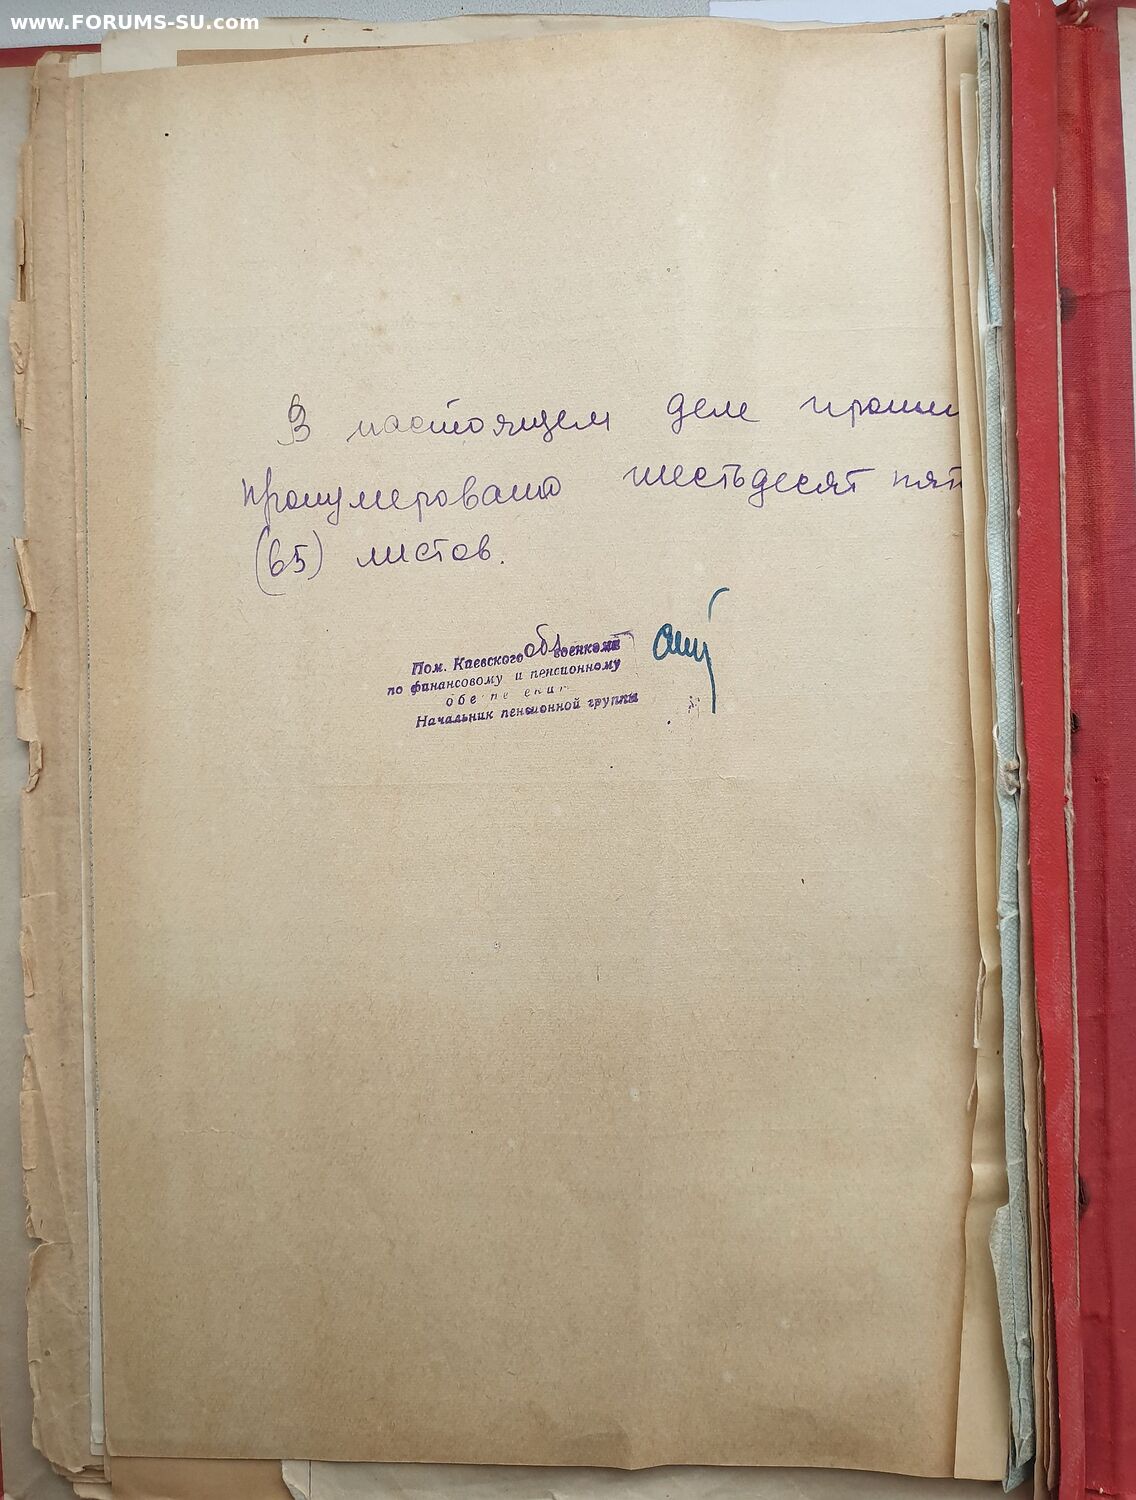 www.FORUMS-SU.com
В настоящем деле проши
пронумеровано шестьдесят пят
(65) листов.
Пом. Киевского обл военкома
по финансовому и пенсионному
Начальник пенсионной группы